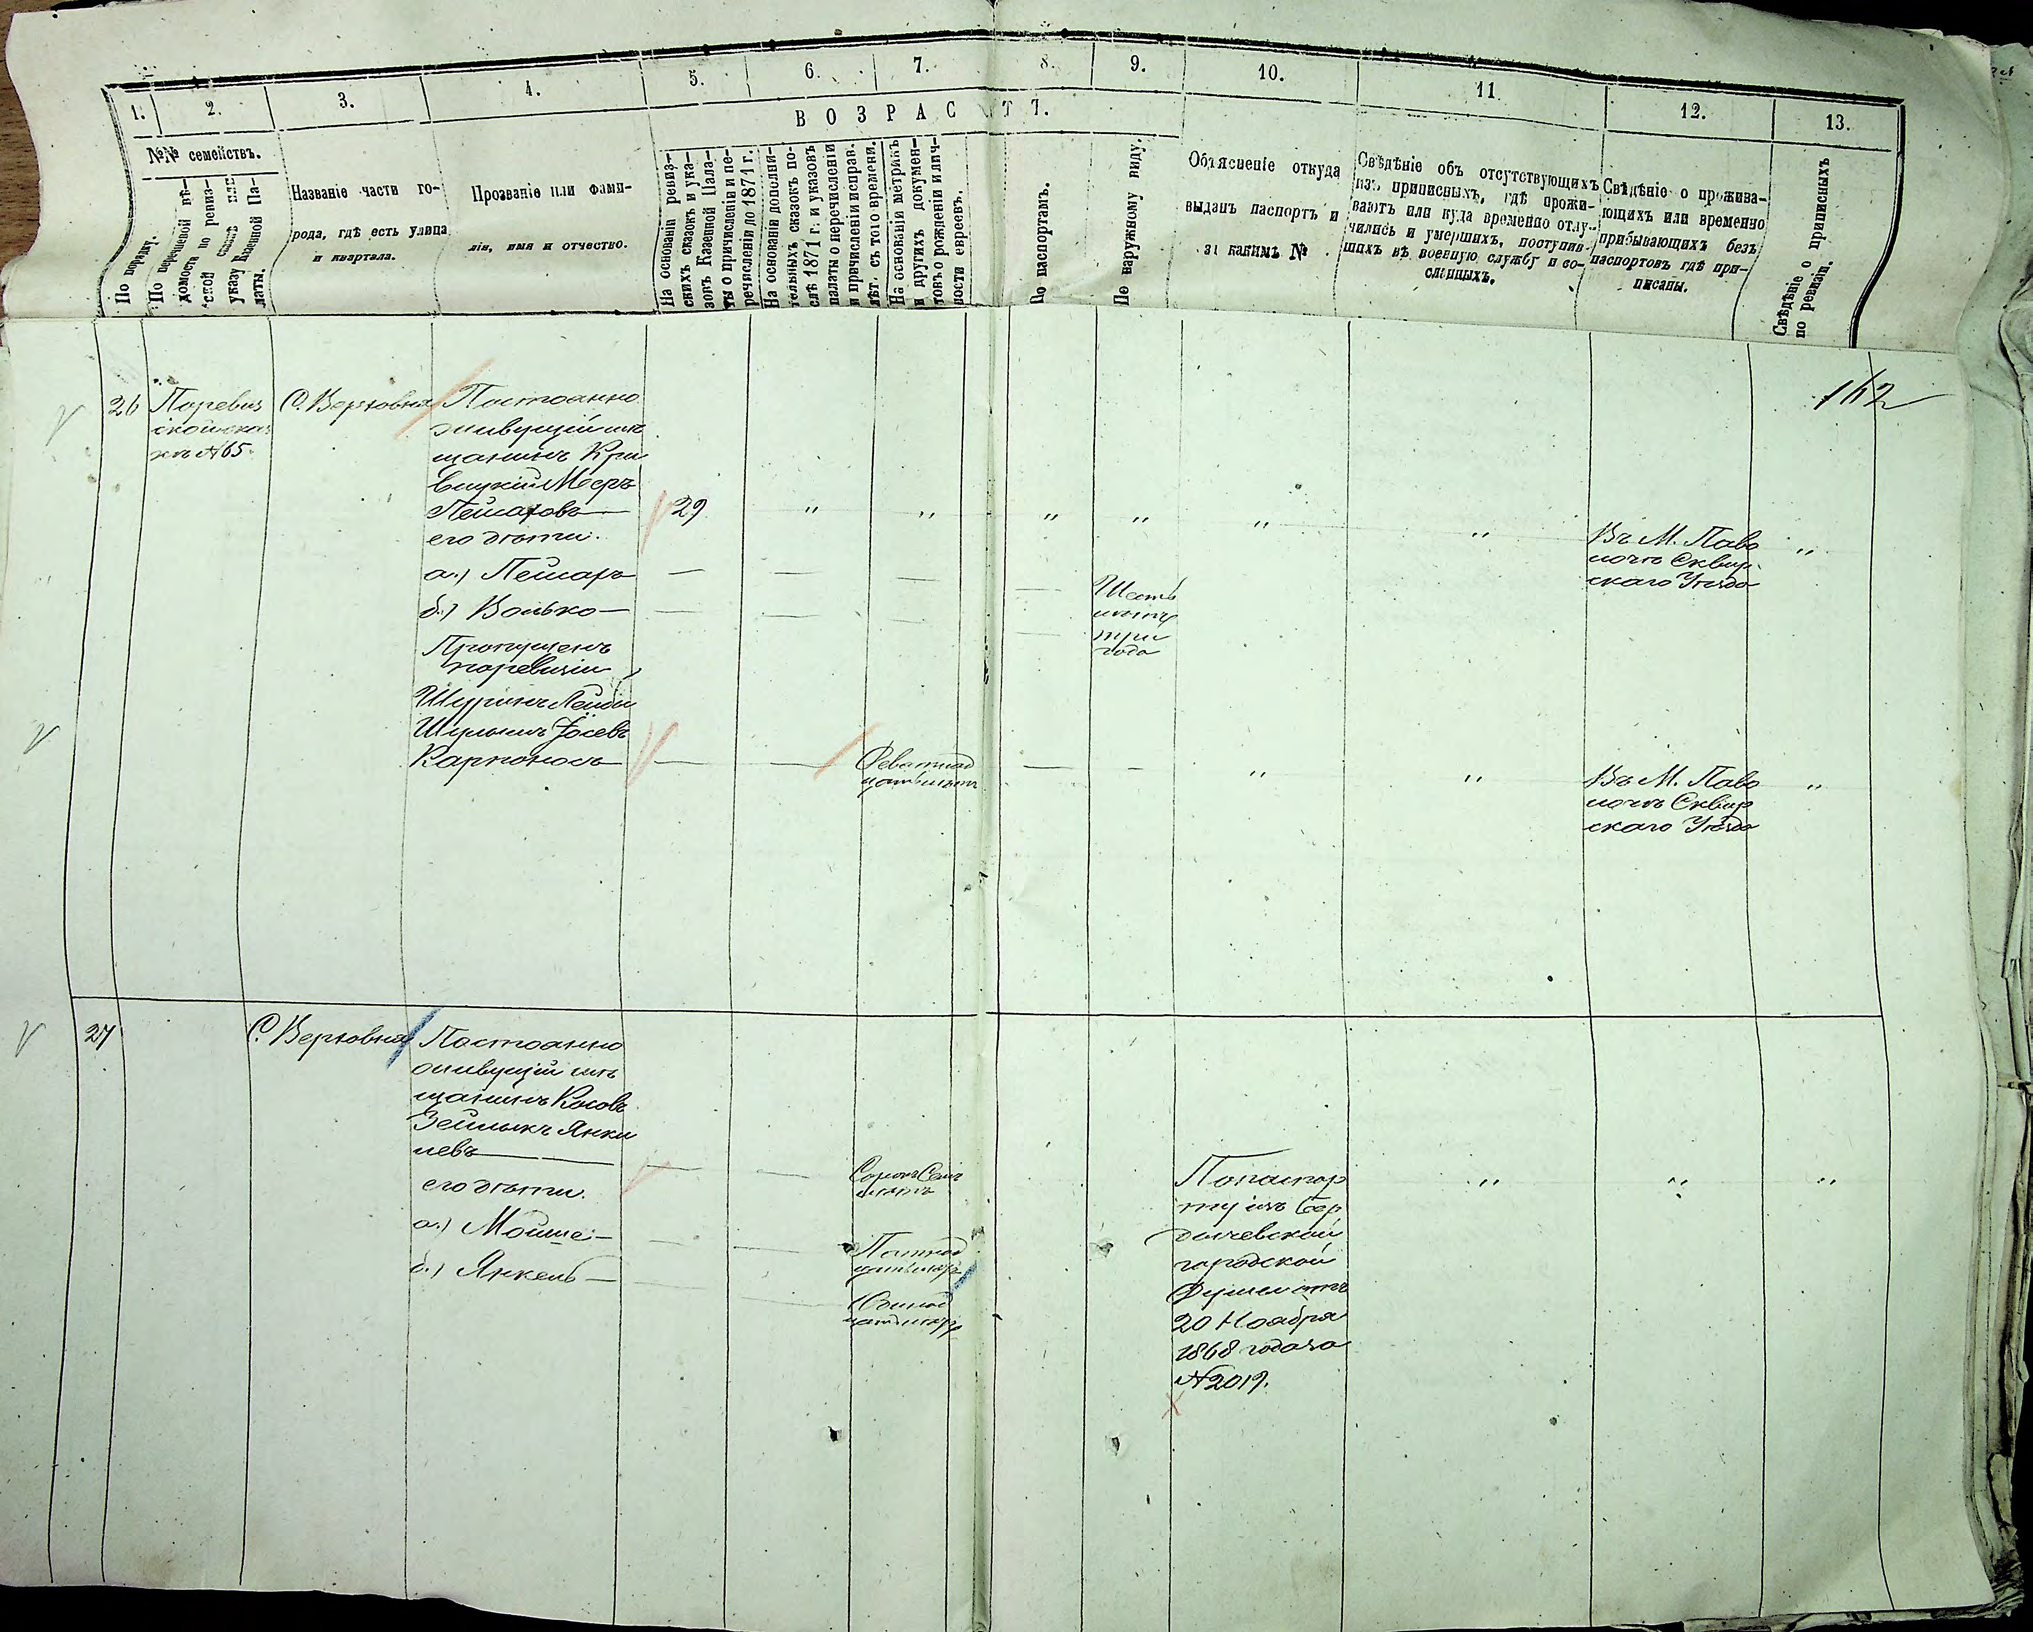 1. 2. 3. 4. 5. 6. 7. 8. 9. 10. 11. 12. 13.
ВОЗРАСТЪ.
По порядку.
№№ семействъ.
По порядковой вѣ-
домости по ревиз-
ской сказкѣ или
указу Казенной Па-
латы.
Названіе части го-
рода, гдѣ есть улица
и квартала.
Прозваніе или фами-
лія, имя и отчество.
На основаніи ревиз-
скихъ сказокъ и ука-
зовъ Казенной Пала-
ты о причисленіи и пе-
речисленіи до 1871 г.
На основаніи дополни-
тельныхъ сказокъ по-
слѣ 1871 г. и указовъ
палаты о перечисленіи
и причисленіи исправ.
лѣт. съ того времени.
На основаніи метрикъ
и другихъ докумен-
товъ о рожденіи и лич-
ности евреевъ.
По паспортамъ.
По наружному виду.
Объясненіе откуда
выданъ паспортъ и
за какимъ №
Свѣдѣніе объ отсутствующихъ
изъ приписныхъ, гдѣ прожи-
ваютъ или куда временно отлу-
чились и умершихъ, поступив-
шихъ въ военную службу и со-
сланныхъ.
Свѣдѣніе о прожива-
ющихъ или временно
прибывающихъ безъ
паспортовъ гдѣ при-
писаны.
Свѣдѣніе о приписныхъ
по ревизіи.
162
26
Поревиз
ской сказ
кѣ №65.
С. Верховня
Постоанно
живущій мѣ
щанинъ Кри
вицкій Меръ
Пейсаховъ
его дѣти:
а.) Пейсахъ —
б.) Волько —
29 " " " " " "
Шесть
лѣтъ
три
года
Въ М. Паво
лочѣ Сквир
скаго Уѣзда
"
Пропущенъ
по ревизіи
Шуринъ Лейби
Шулимъ Іосевъ
Карпоносъ
— — Деватнад
цать лѣтъ — — " "
Въ М. Паво
лочѣ Сквир
скаго Уѣзда
"
27
С. Верховня
Постоанно
живущій мѣ
щанинъ Косовъ
Зейлыкъ Янки
левъ
его дѣти.
а.) Мойше —
б.) Янкель —
Сорокъ Семь
лѣтъ
Патнад
цать лѣтъ
Одинад
цать лѣтъ
По паспор
ту изъ Бер
дичевской
городской
Думы отъ
20 Ноабра
1868 года за
№2019.
" " "